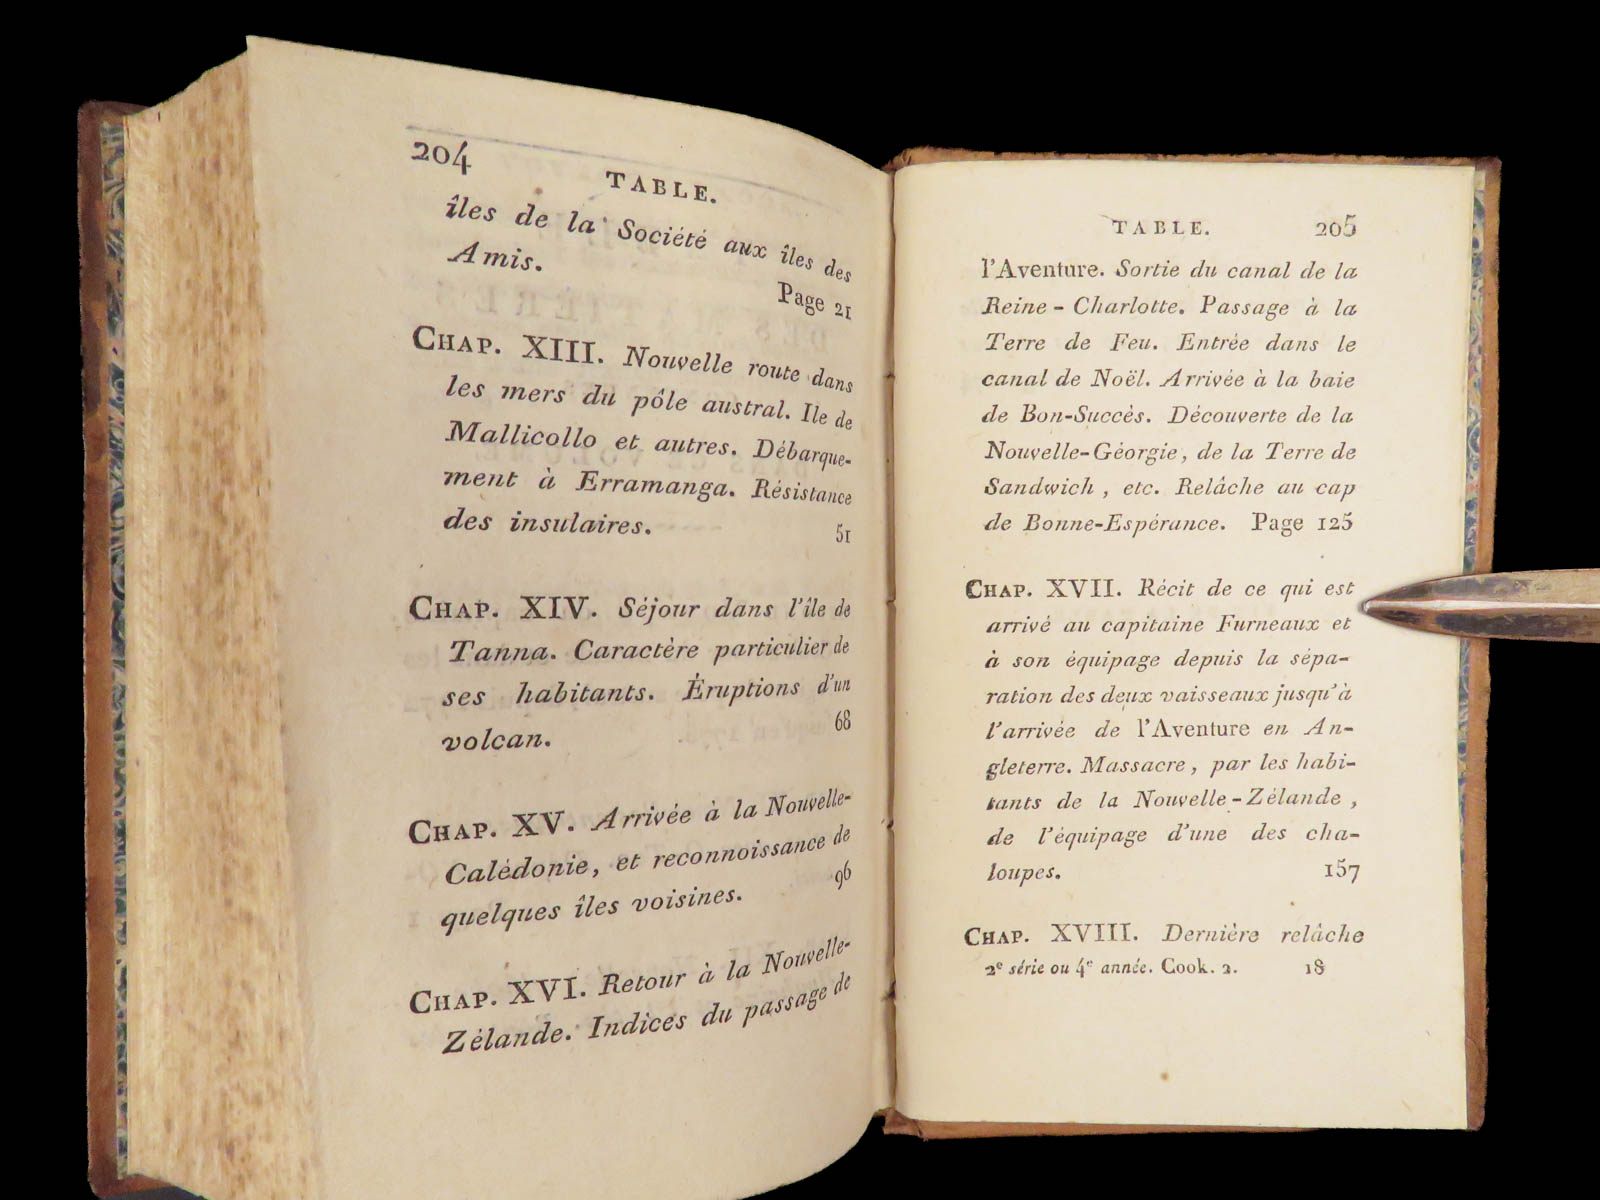 204
TABLE.
îles de la Société aux îles des
Amis.
Page 21
CHAP. XIII. Nouvelle route dans
les mers du pôle austral. Ile de
Mallicollo et autres. Débarque-
ment à Erramanga. Résistance
des insulaires. 51
CHAP. XIV. Séjour dans l'île de
Tanna. Caractère particulier de
ses habitants. Éruptions d'un
volcan. 68
CHAP. XV. Arrivée à la Nouvelle-
Calédonie, et reconnoissance de
quelques îles voisines. 96
CHAP. XVI. Retour à la Nouvelle-
Zélande. Indices du passage de
TABLE. 205
l'Aventure. Sortie du canal de la
Reine-Charlotte. Passage à la
Terre de Feu. Entrée dans le
canal de Noël. Arrivée à la baie
de Bon-Succès. Découverte de la
Nouvelle-Géorgie, de la Terre de
Sandwich, etc. Relâche au cap
de Bonne-Espérance. Page 125
CHAP. XVII. Récit de ce qui est
arrivé au capitaine Furneaux et
à son équipage depuis la sépa-
ration des deux vaisseaux jusqu'à
l'arrivée de l'Aventure en An-
gleterre. Massacre, par les habi-
tants de la Nouvelle-Zélande,
de l'équipage d'une des cha-
loupes. 157
CHAP. XVIII. Dernière relâche
2e série ou 4e année. Cook. 2. 18